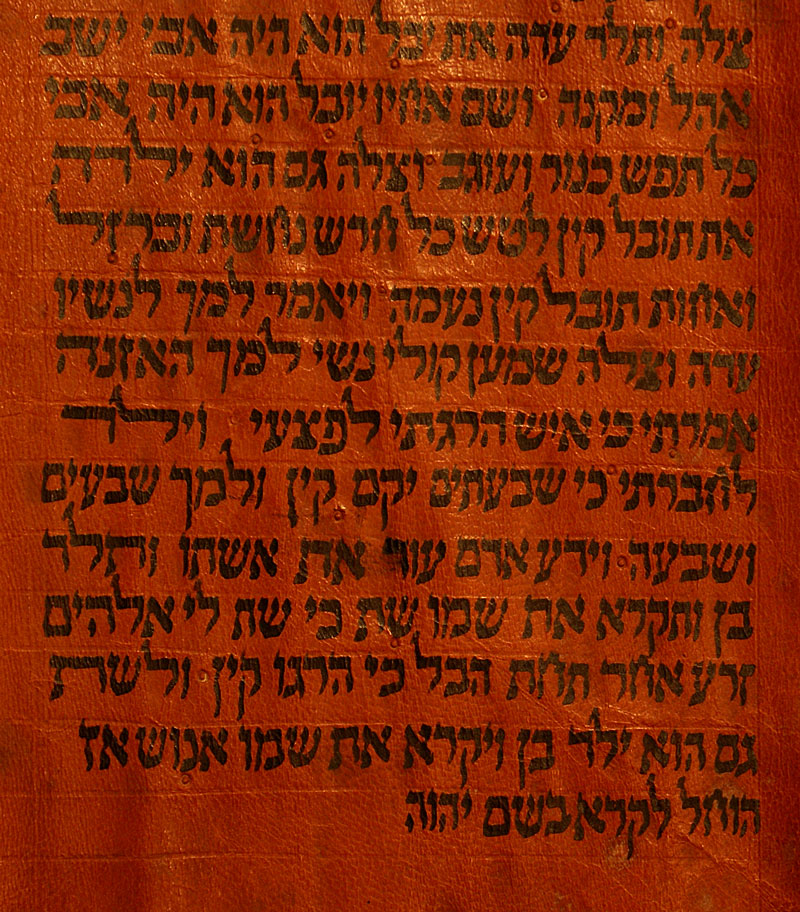 צלה ותלד עדה את יבל הוא היה אבי ישב
אהל ומקנה ושם אחיו יובל הוא היה אבי
כל תפש כנור ועוגב וצלה גם הוא ילדה
את תובל קין לטש כל חרש נחשת וברזל
ואחות תובל קין נעמה ויאמר למך לנשיו
עדה וצלה שמען קולי נשי למך האזנה
אמרתי כי איש הרגתי לפצעי וילד
לחברתי כי שבעתים יקם קין ולמך שבעים
ושבעה וידע אדם עוד את אשתו ותלד
בן ותקרא את שמו שת כי שת לי אלהים
זרע אחר תחת הבל כי הרגו קין ולשת
גם הוא ילד בן ויקרא את שמו אנוש אז
הוחל לקרא בשם יהוה